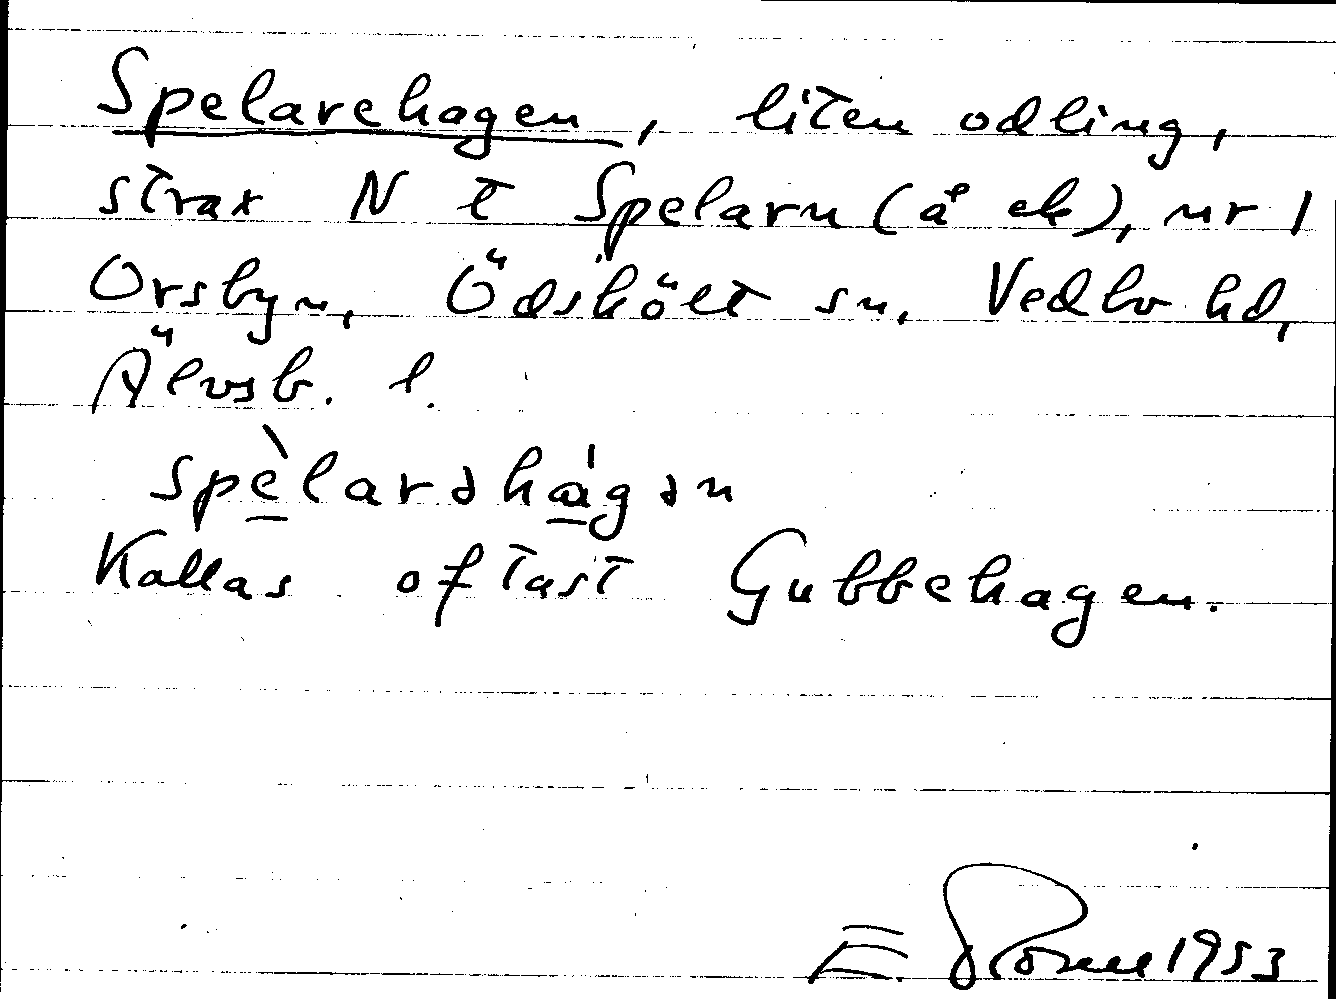 Spelarehagen, liten odling,
strax N t Spelarn (å ek), nr 1
Orsbyn, Ödskölt sn, Vedbo hd,
Älvsb. l.
spèlarəhágən
Kallas oftast Gubbehagen.
E. 1953